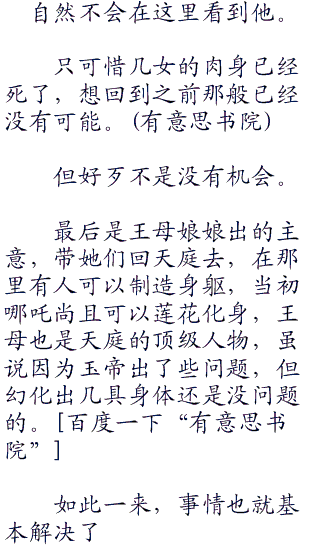 自然不会在这里看到他。
只可惜几女的肉身已经
死了，想回到之前那般已经
没有可能。(有意思书院)
但好歹不是没有机会。
最后是王母娘娘出的主
意，带她们回天庭去，在那
里有人可以制造身躯，当初
哪吒尚且可以莲花化身，王
母也是天庭的顶级人物，虽
说因为玉帝出了些问题，但
幻化出几具身体还是没问题
的。[百度一下“有意思书
院”]
如此一来，事情也就基
本解决了